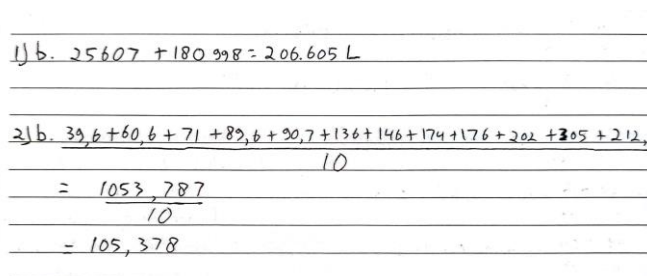 1) b. 25607 + 180 998 = 206.605 L
2) b. 39,6 + 60,6 + 71 + 89,6 + 90,7 + 136 + 146 + 174 + 176 + 202 + 305 + 212,
10
= 1053,787
10
= 105,378